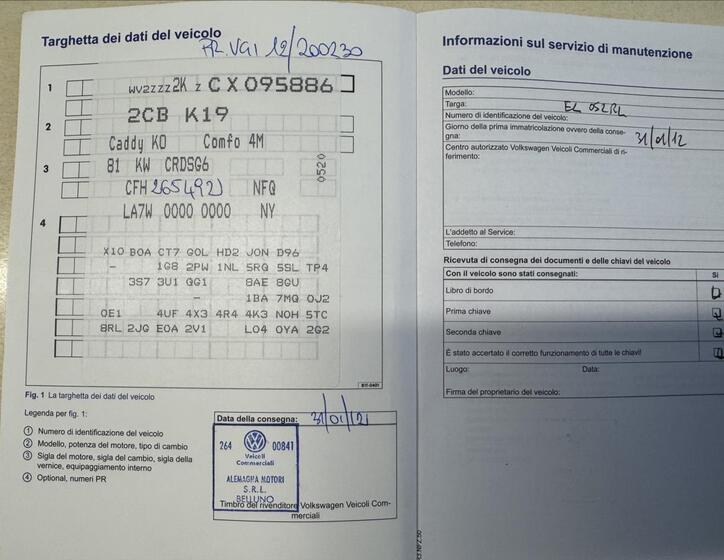 Targhetta dei dati del veicolo
PR.VGI 12/200230
1
WV2ZZZ2KZCX095886
2CB K19
2
Caddy KO Comfo 4M
3
81 KW CRDSG6
0520
CFH 265492) NFQ
LA7W 0000 0000 NY
4
X10 BOA CT7 GOL HD2 JON D96
- 1G8 2PW 1NL 5RQ 5SL TP4
3S7 3U1 GG1 8AE 8GU
- 1BA 7MG OJ2
OE1 4UF 4X3 4R4 4K3 NOH 5TC
8RL 2JG EOA 2V1 LO4 OYA 2G2
B1I-0401
Fig. 1 La targhetta dei dati del veicolo
Legenda per fig. 1:
① Numero di identificazione del veicolo
② Modello, potenza del motore, tipo di cambio
③ Sigla del motore, sigla del cambio, sigla della
vernice, equipaggiamento interno
④ Optional, numeri PR
Data della consegna: 31/01/12
264 00841
Veicoli
Commerciali
ALEMAGNA MOTORI
S.R.L.
BELLUNO
Timbro del rivenditore Volkswagen Veicoli Com-
merciali
Informazioni sul servizio di manutenzione
Dati del veicolo
Modello:
Targa: EL 052RL
Numero di identificazione del veicolo:
Giorno della prima immatricolazione ovvero della conse-
gna: 31/01/12
Centro autorizzato Volkswagen Veicoli Commerciali di ri-
ferimento:
L'addetto al Service:
Telefono:
Ricevuta di consegna dei documenti e delle chiavi del veicolo
Con il veicolo sono stati consegnati: Sì
Libro di bordo
Prima chiave
Seconda chiave
È stato accertato il corretto funzionamento di tutte le chiavi!
Luogo: Data:
Firma del proprietario del veicolo: